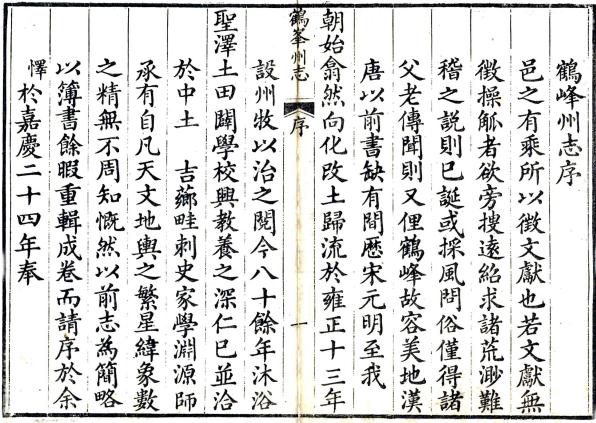 鶴峰州志序
邑之有乘所以徵文獻也若文獻無
徵操觚者欲旁搜遠紹求諸荒渺難
稽之説則已誕或採風問俗僅得諸
父老傳聞則又俚鶴峰故容美地漢
唐以前書缺有間歷宋元明至我
朝始翕然向化改土歸流於雍正十三年
鶴峯州志
序
一
設州牧以治之閱今八十餘年沐浴
聖澤土田闢學校興教養之深仁已並洽
於中土 吉薌畦刺史家學淵源師
承有自凡天文地輿之繁星緯象數
之精無不周知慨然以前志為簡略
以簿書餘暇重輯成卷而請序於余
懌於嘉慶二十四年奉